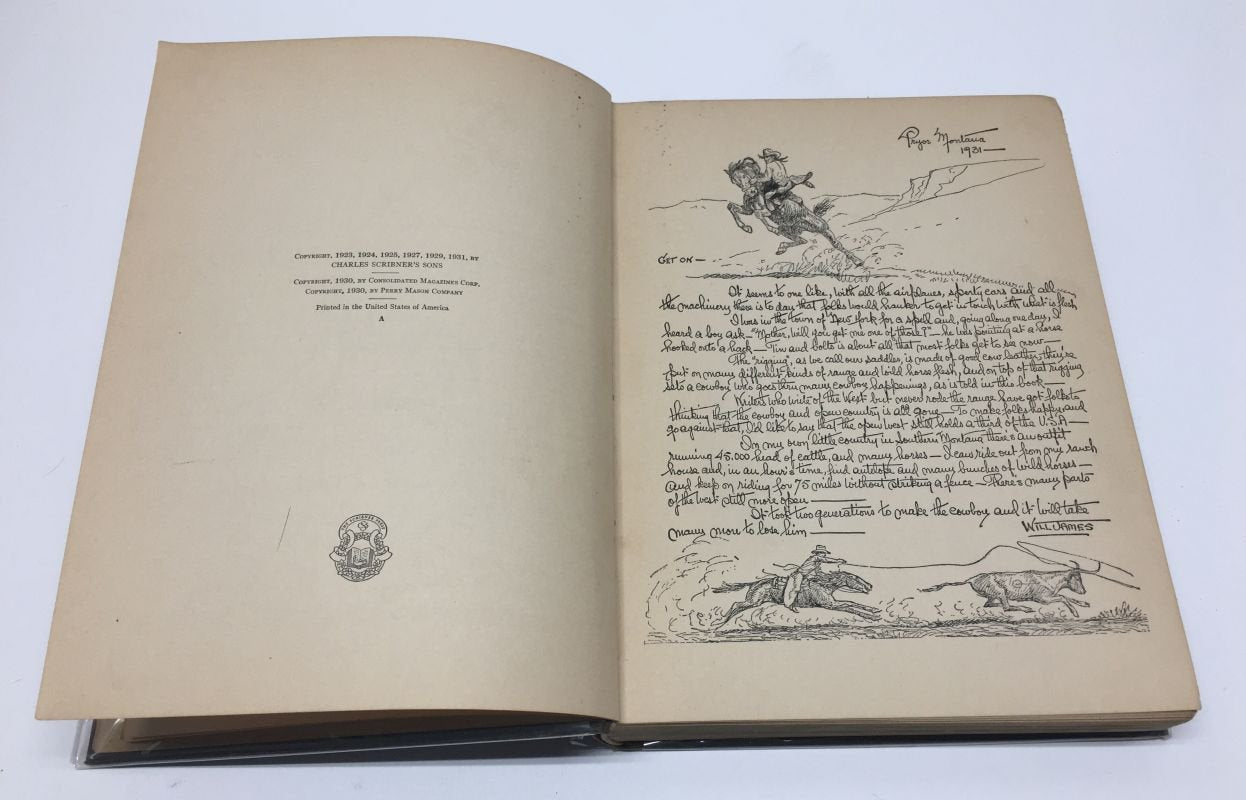 COPYRIGHT, 1923, 1924, 1925, 1927, 1929, 1931, BY
CHARLES SCRIBNER'S SONS
COPYRIGHT, 1930, BY CONSOLIDATED MAGAZINES CORP.
COPYRIGHT, 1930, BY PERRY MASON COMPANY
Printed in the United States of America
A
THE SCRIBNER PRESS
Pryor Montana
1931—
GET ON—
It seems to one like, with all the airplanes, sporty cars and all
the machinery there is to day that folks would hanker to get in touch with what is flesh
I was in the town of New York for a spell and, going along one day, I
heard a boy ask—"Mother, will you get me one of those?"— he was pointing at a horse
hooked onto a hack— Tin and bolts is about all that most folks get to see now—
The "rigging", as we call our saddles, is made of good cow leather, they're
put on many different kinds of range and wild horse flesh, and on top of that rigging
sets a cowboy who goes thru many cowboy happenings, as is told in this book—
Writers who write of the West but never rode the range have got folks to
thinking that the cowboy and open country is all gone— To make folks happy and
go against that, I'd like to say that the open west still holds a third of the U.S.A—
In my own little country in Southern Montana there's an outfit
running 45.000 head of cattle, and many horses— I can ride out from my ranch
house and, in an hour's time, find antelope and many bunches of wild horses—
and keep on riding for 75 miles without striking a fence— There's many parts
of the west still more open—
It took two generations to make the cowboy and it will take
many more to lose him—
WILL JAMES